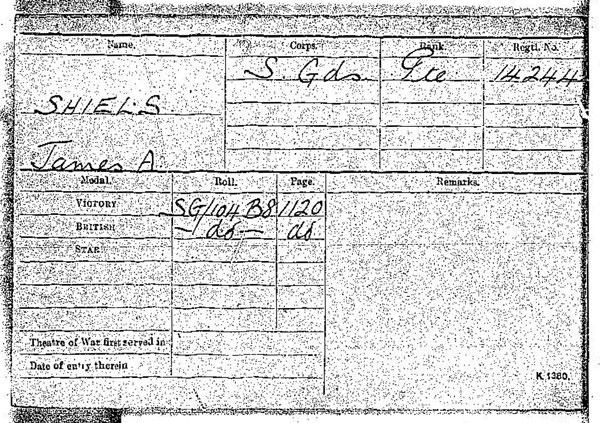 Name. Corps. Rank. Regtl. No.
S. Gds. Pte 14244
SHIELS
James A.
Medal. Roll. Page. Remarks.
VICTORY SG/104 B8 1120
BRITISH — do — do
STAR
Theatre of War first served in
Date of entry therein
K 1380.